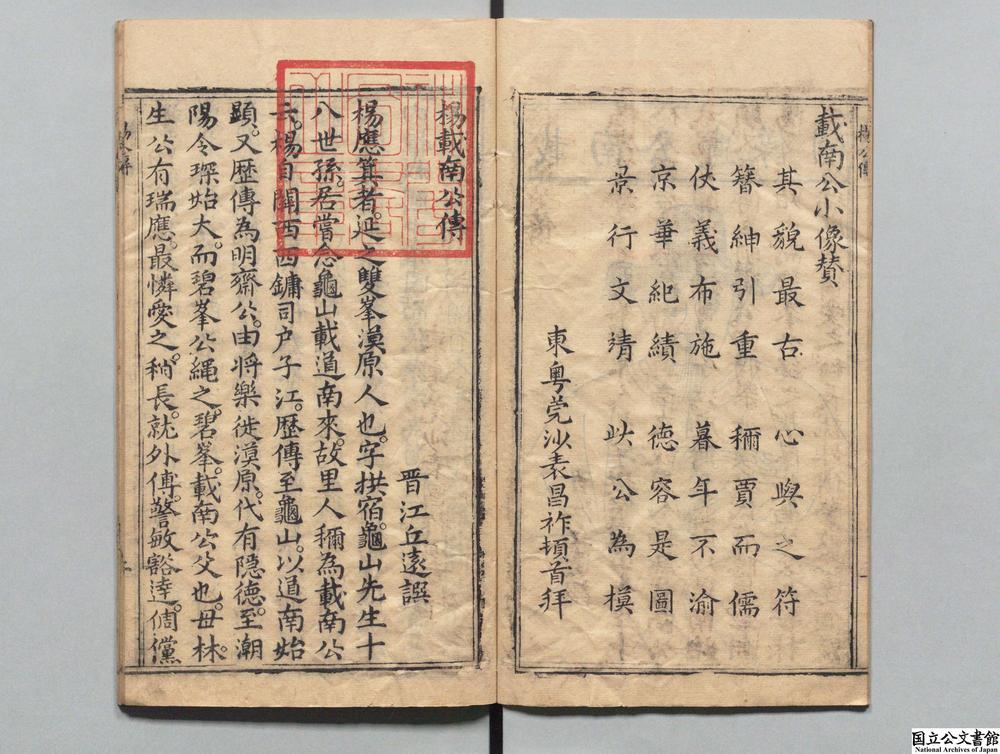 載南公小像贊
其貌最古心與之符
簪紳引重稱賈而儒
伏義布施暮年不渝
京華紀績德容是圖
景行文靖此公為模
東粤莞沙袁昌祚頓首拜
楊載南公傳
晋江丘遠譔
楊應箕者。延之雙峯漠原人也。字拱宿。龜山先生十
八世孫。居嘗念龜山載道南來。故里人稱為載南公
云。楊自關西西鏞司户子江。歷傳至龜山。以道南始
顯。又歷傳為明齋公。由將樂徙漠原。代有隱德。至潮
陽令琛始大。而碧峯公繩之。碧峯。載南公父也。毋林。
生公有瑞應。最憐愛之。稍長。就外傅。警敏豁達。倜儻
国立公文書館
National Archives of Japan